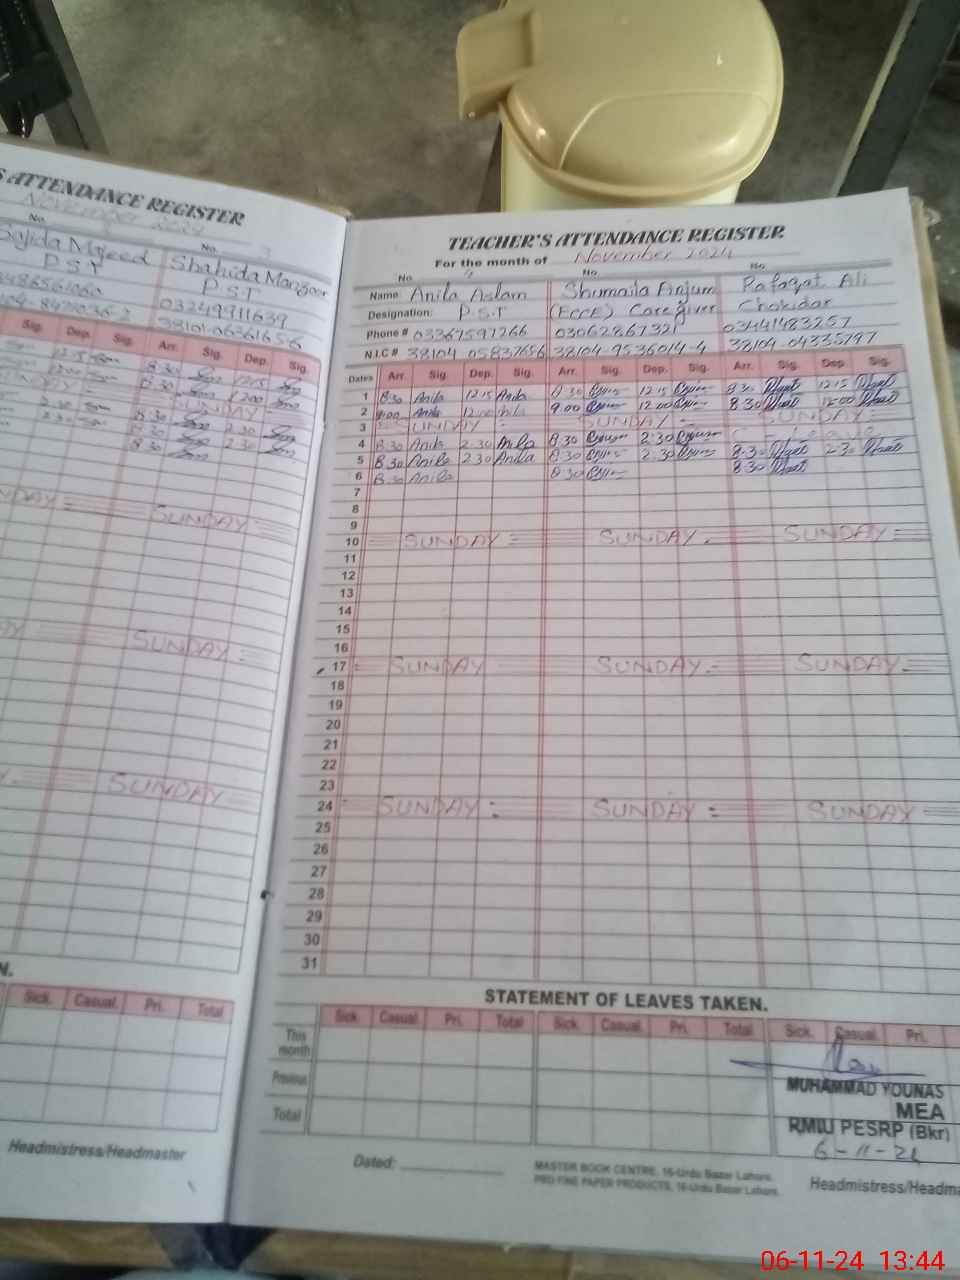 S ATTENDANCE REGISTER
November 2024
No.
No. 3
Sajida Majeed
Shahida Manzoor
P.S.T
P.S.T
03249911639
Sig. Dep. Sig. Arr. Sig. Dep. Sig.
8.30 1215
8.30 1200
SUNDAY
8.30 2.30
8.30 2.30
8.30
SUNDAY
SUNDAY
SUNDAY
N.
Sick. Casual. Pri. Total
Headmistress/Headmaster
TEACHER'S ATTENDANCE REGISTER
For the month of November 2024
No. 4 No. No.
Name: Anila Aslam Shumaila Anjum Rafaqat Ali
Designation: P.S.T (ECCE) Caregiver Chokidar
Phone # 03367597266 03062867321 03441483257
N.I.C # 38104 05837656 38104-9536014-4 38104-04335797
Dates Arr. Sig. Dep. Sig. Arr. Sig. Dep. Sig. Arr. Sig. Dep. Sig.
1 8.30 Anila 12.15 Anila 8.30 12.15 8.30 12.15
2 9.00 Anila 12.00 9.00 12.00 8.30 12.00
3 = SUNDAY = SUNDAY = SUNDAY
4 8.30 Anila 2.30 Anila 8.30 2.30
5 8.30 Anila 2.30 Anila 8.30 2.30 8.30 2.30
6 8.30 Anila 8.30 8.30
7
8
9
10 SUNDAY = SUNDAY . SUNDAY =
11
12
13
14
15
16
17 = SUNDAY SUNDAY = SUNDAY =
18
19
20
21
22
23
24 SUNDAY = SUNDAY = SUNDAY =
25
26
27
28
29
30
31
STATEMENT OF LEAVES TAKEN.
Sick. Casual. Pri. Total Sick. Casual. Pri. Total Sick. Casual. Pri.
This month
Previous
Total
MUHAMMAD YOUNAS
MEA
RMIU PESRP (Bkr)
6-11-24
Dated:
MASTER BOOK CENTRE, 16-Urdu Bazar Lahore.
PRO FINE PAPER PRODUCTS, 16-Urdu Bazar Lahore.
Headmistress/Headma
06-11-24 13:44